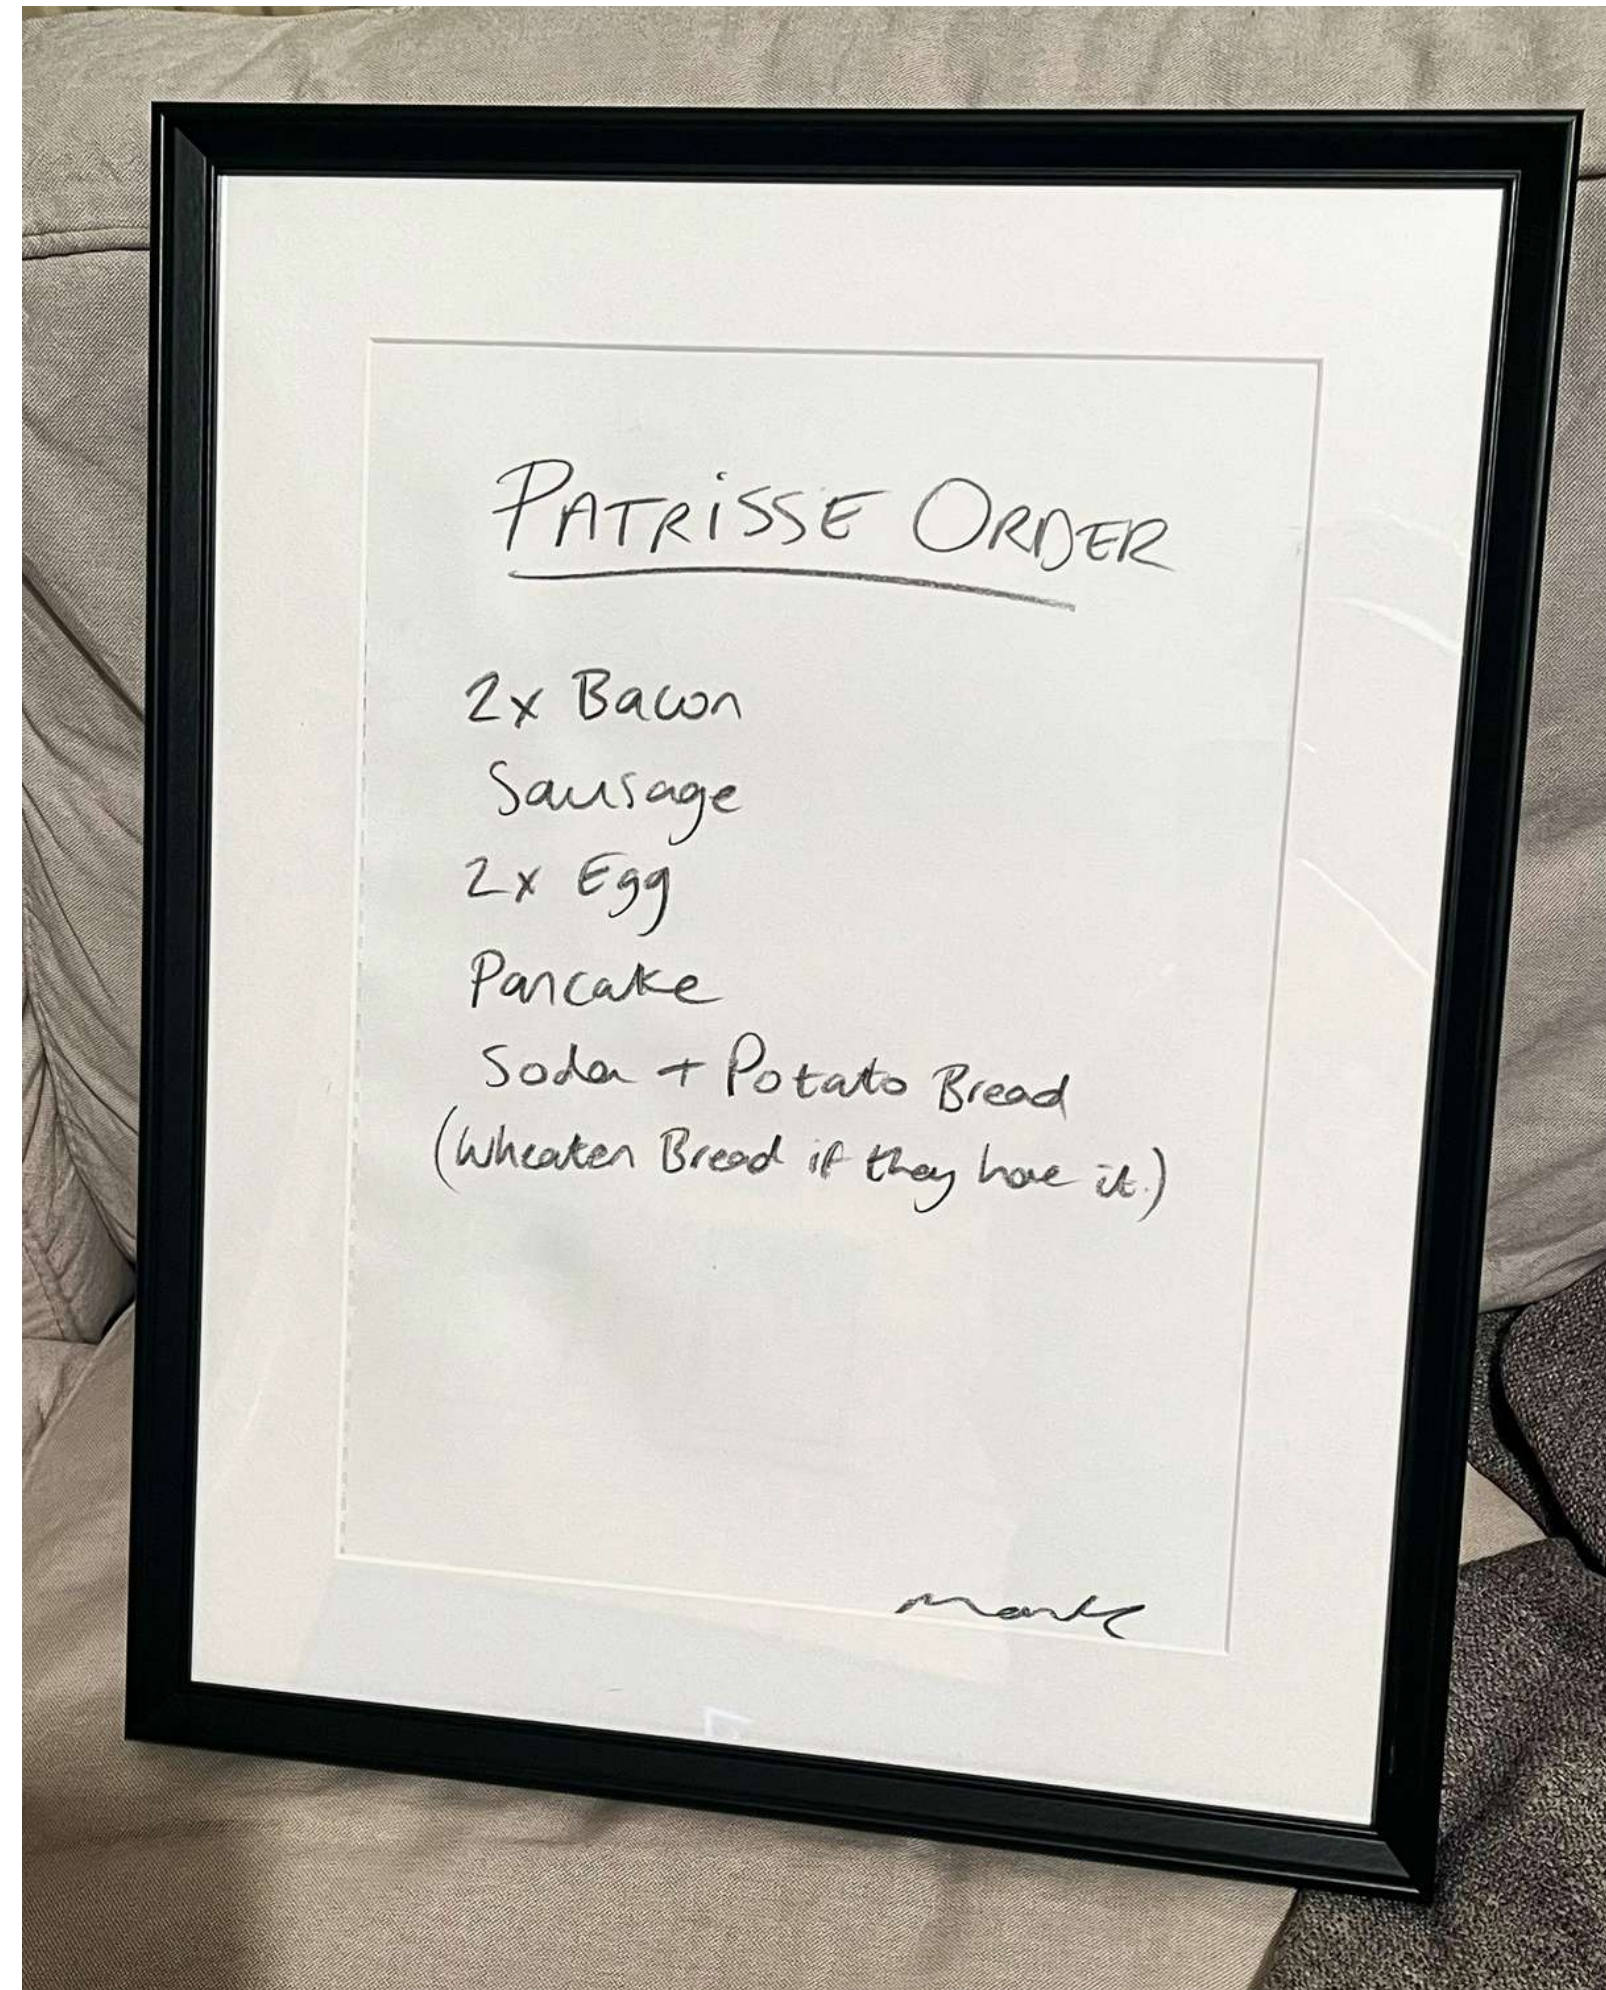 PATRISSE ORDER
2x Bacon
Sausage
2x Egg
Pancake
Soda + Potato Bread
(Wheaten Bread if they have it.)
Mark